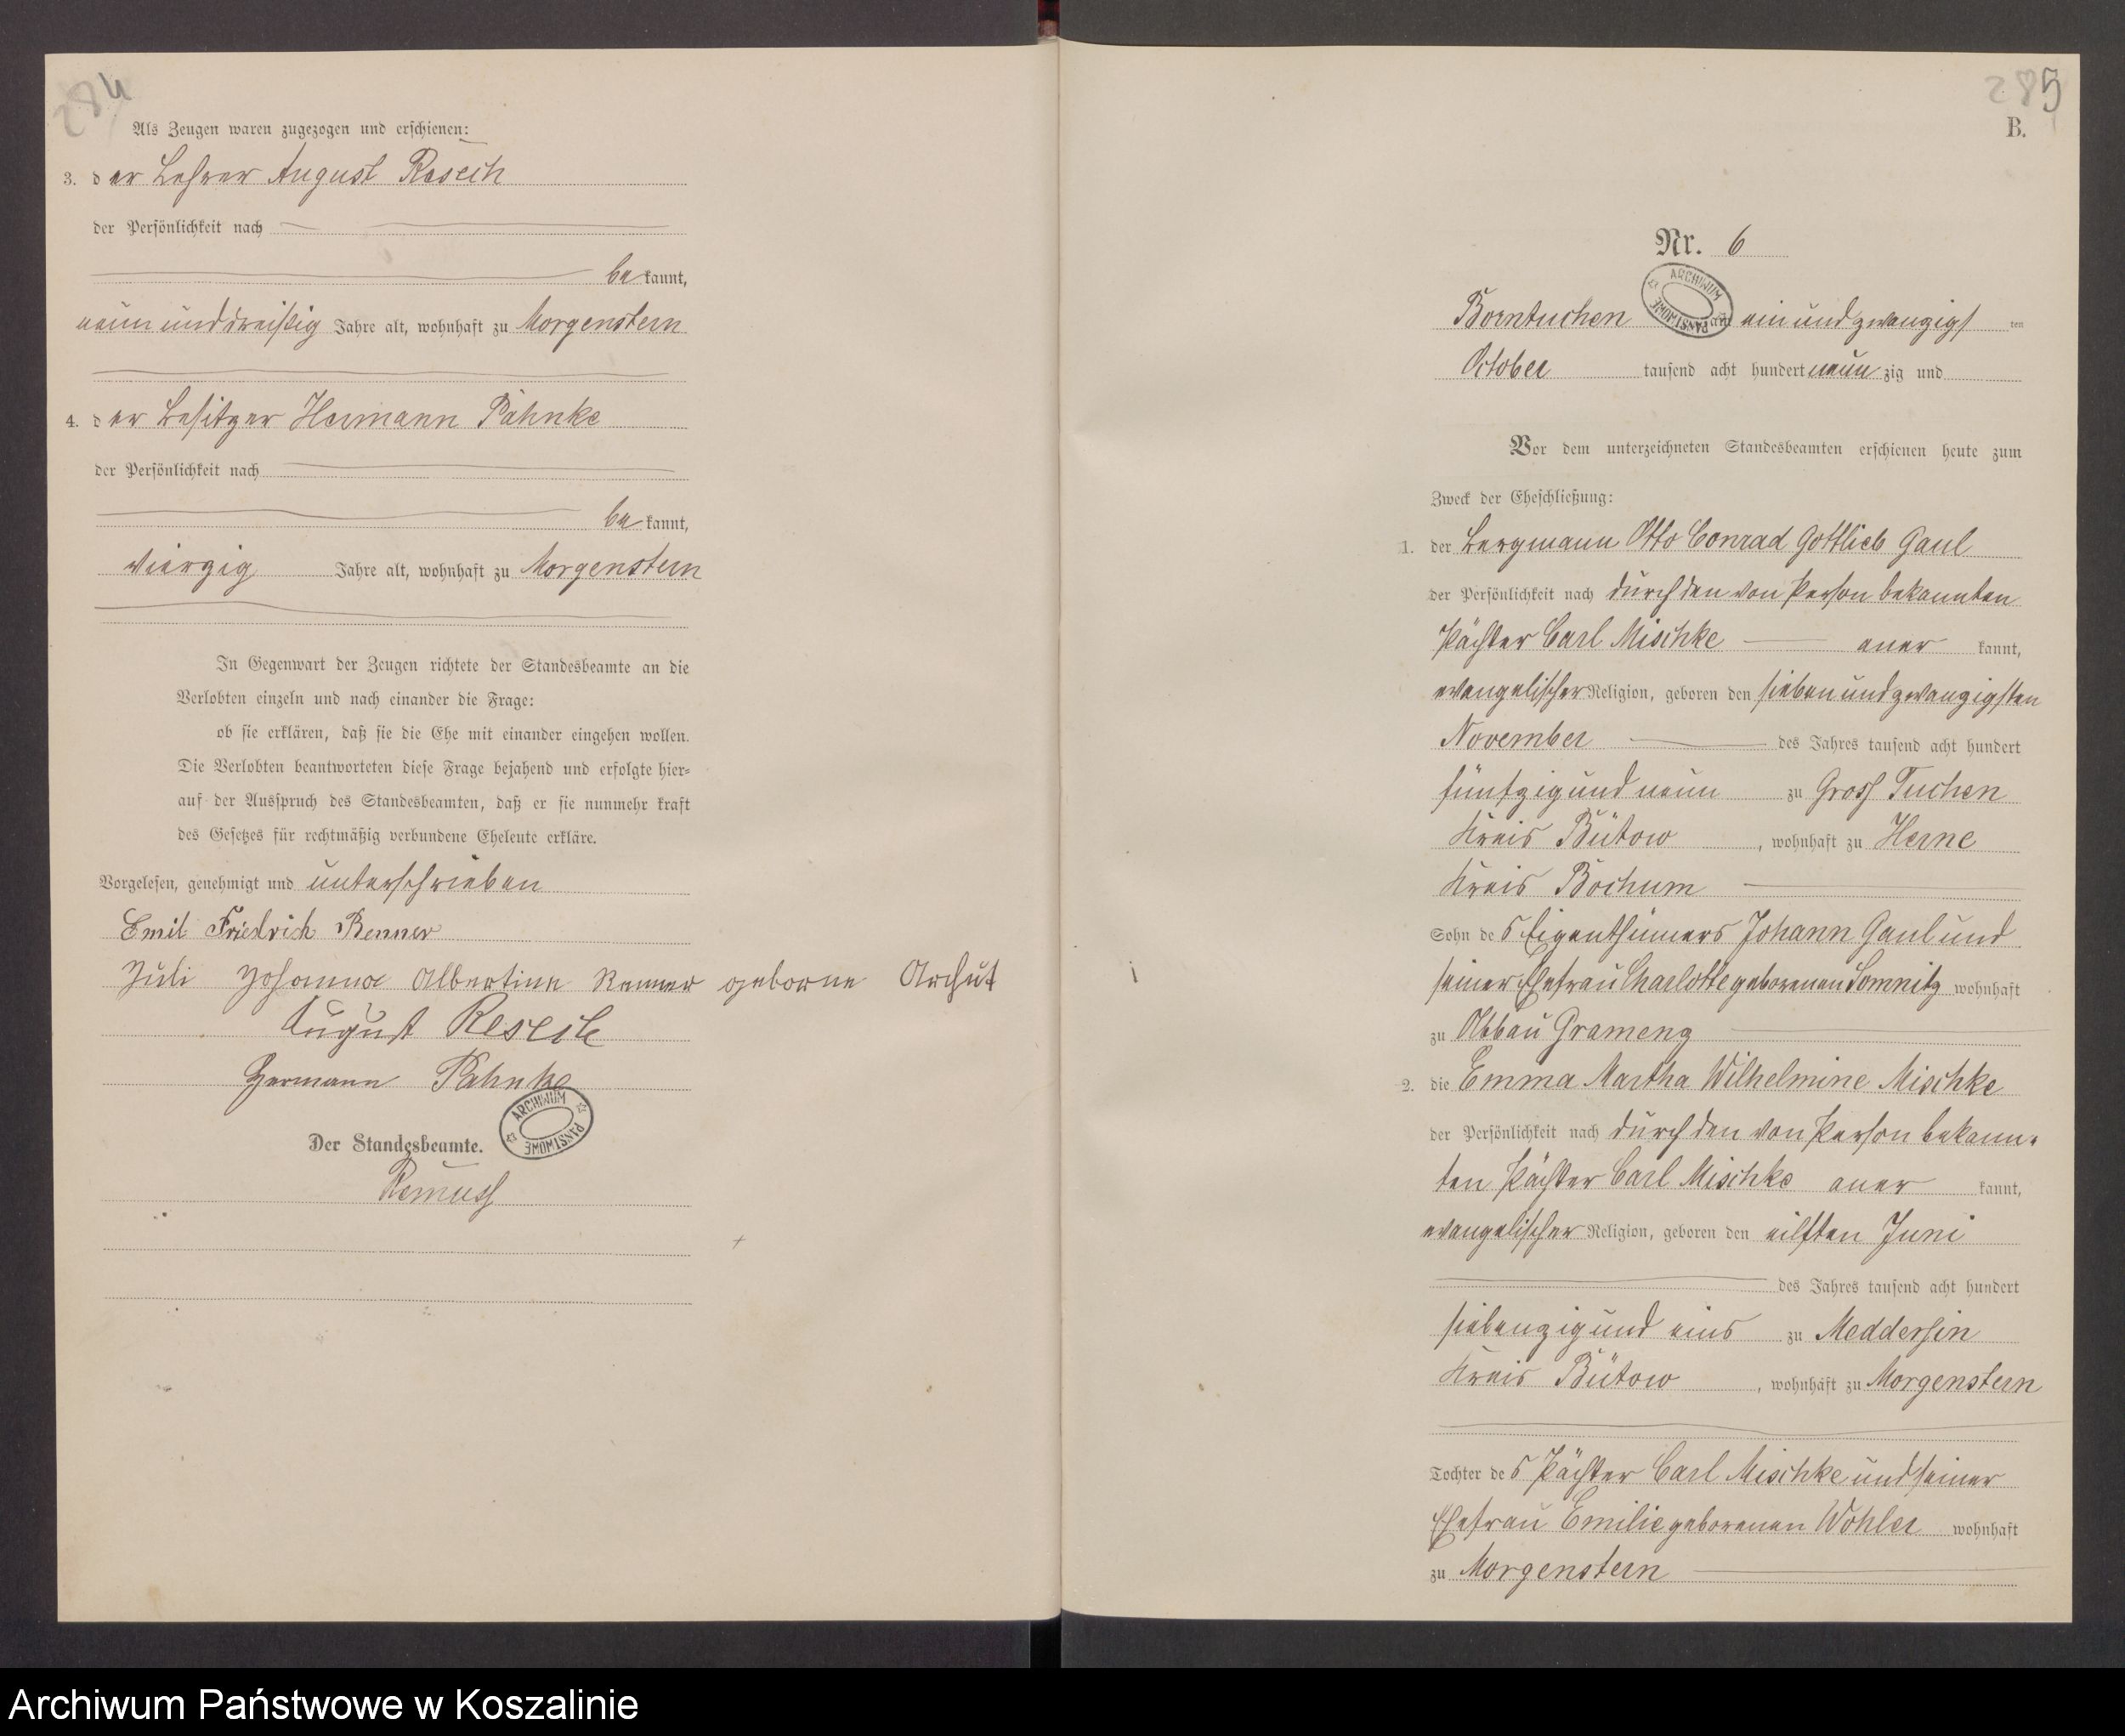 284
Als Zeugen waren zugezogen und erschienen:
3. der Lehrer August Resech
der Persönlichkeit nach
bekannt,
neun und dreißig Jahre alt, wohnhaft zu Morgenstern
4. der Besitzer Hermann Pahnke
der Persönlichkeit nach
bekannt,
vierzig Jahre alt, wohnhaft zu Morgenstern
In Gegenwart der Zeugen richtete der Standesbeamte an die
Verlobten einzeln und nach einander die Frage:
ob sie erklären, daß sie die Ehe mit einander eingehen wollen.
Die Verlobten beantworteten diese Frage bejahend und erfolgte hier=
auf der Ausspruch des Standesbeamten, daß er sie nunmehr kraft
des Gesetzes für rechtmäßig verbundene Eheleute erkläre.
Vorgelesen, genehmigt und unterschrieben
Emil Friedrich Renner
Juli Johanna Albertine Renner geborne Archut
August
Hermann Pahnke
ARCHIWUM PAŃSTWOWE
Der Standesbeamte.
Remuss
285
B.
Nr. 6
ARCHIWUM PAŃSTWOWE
Borntuchen am ein und zwanzigst ten
October tausend acht hundert neun zig und
Vor dem unterzeichneten Standesbeamten erschienen heute zum
Zweck der Eheschließung:
1. der Bergmann Otto Conrad Gottlieb Gaul
der Persönlichkeit nach durch den von Person bekannten
Pächter Carl Mischke aner kannt,
evangelischer Religion, geboren den sieben und zwanzigsten
November des Jahres tausend acht hundert
fünfzig und neun zu Gross Tuchen
Kreis Bütow, wohnhaft zu Herne
Kreis Bochum
Sohn des Eigenthümers Johann Gaul und
seiner Ehefrau Charlotte geborenen Somnitz wohnhaft
zu Abbau Grameng
2. die Emma Martha Wilhelmine Mischke
der Persönlichkeit nach durch den von Person bekann-
ten Pächter Carl Mischke aner kannt,
evangelischer Religion, geboren den eilften Juni
des Jahres tausend acht hundert
siebenzig und eins zu Meddersin
Kreis Bütow, wohnhaft zu Morgenstern
Tochter des Pächter Carl Mischke und seiner
Ehefrau Emilie geborenen Wohler wohnhaft
zu Morgenstern
Archiwum Państwowe w Koszalinie